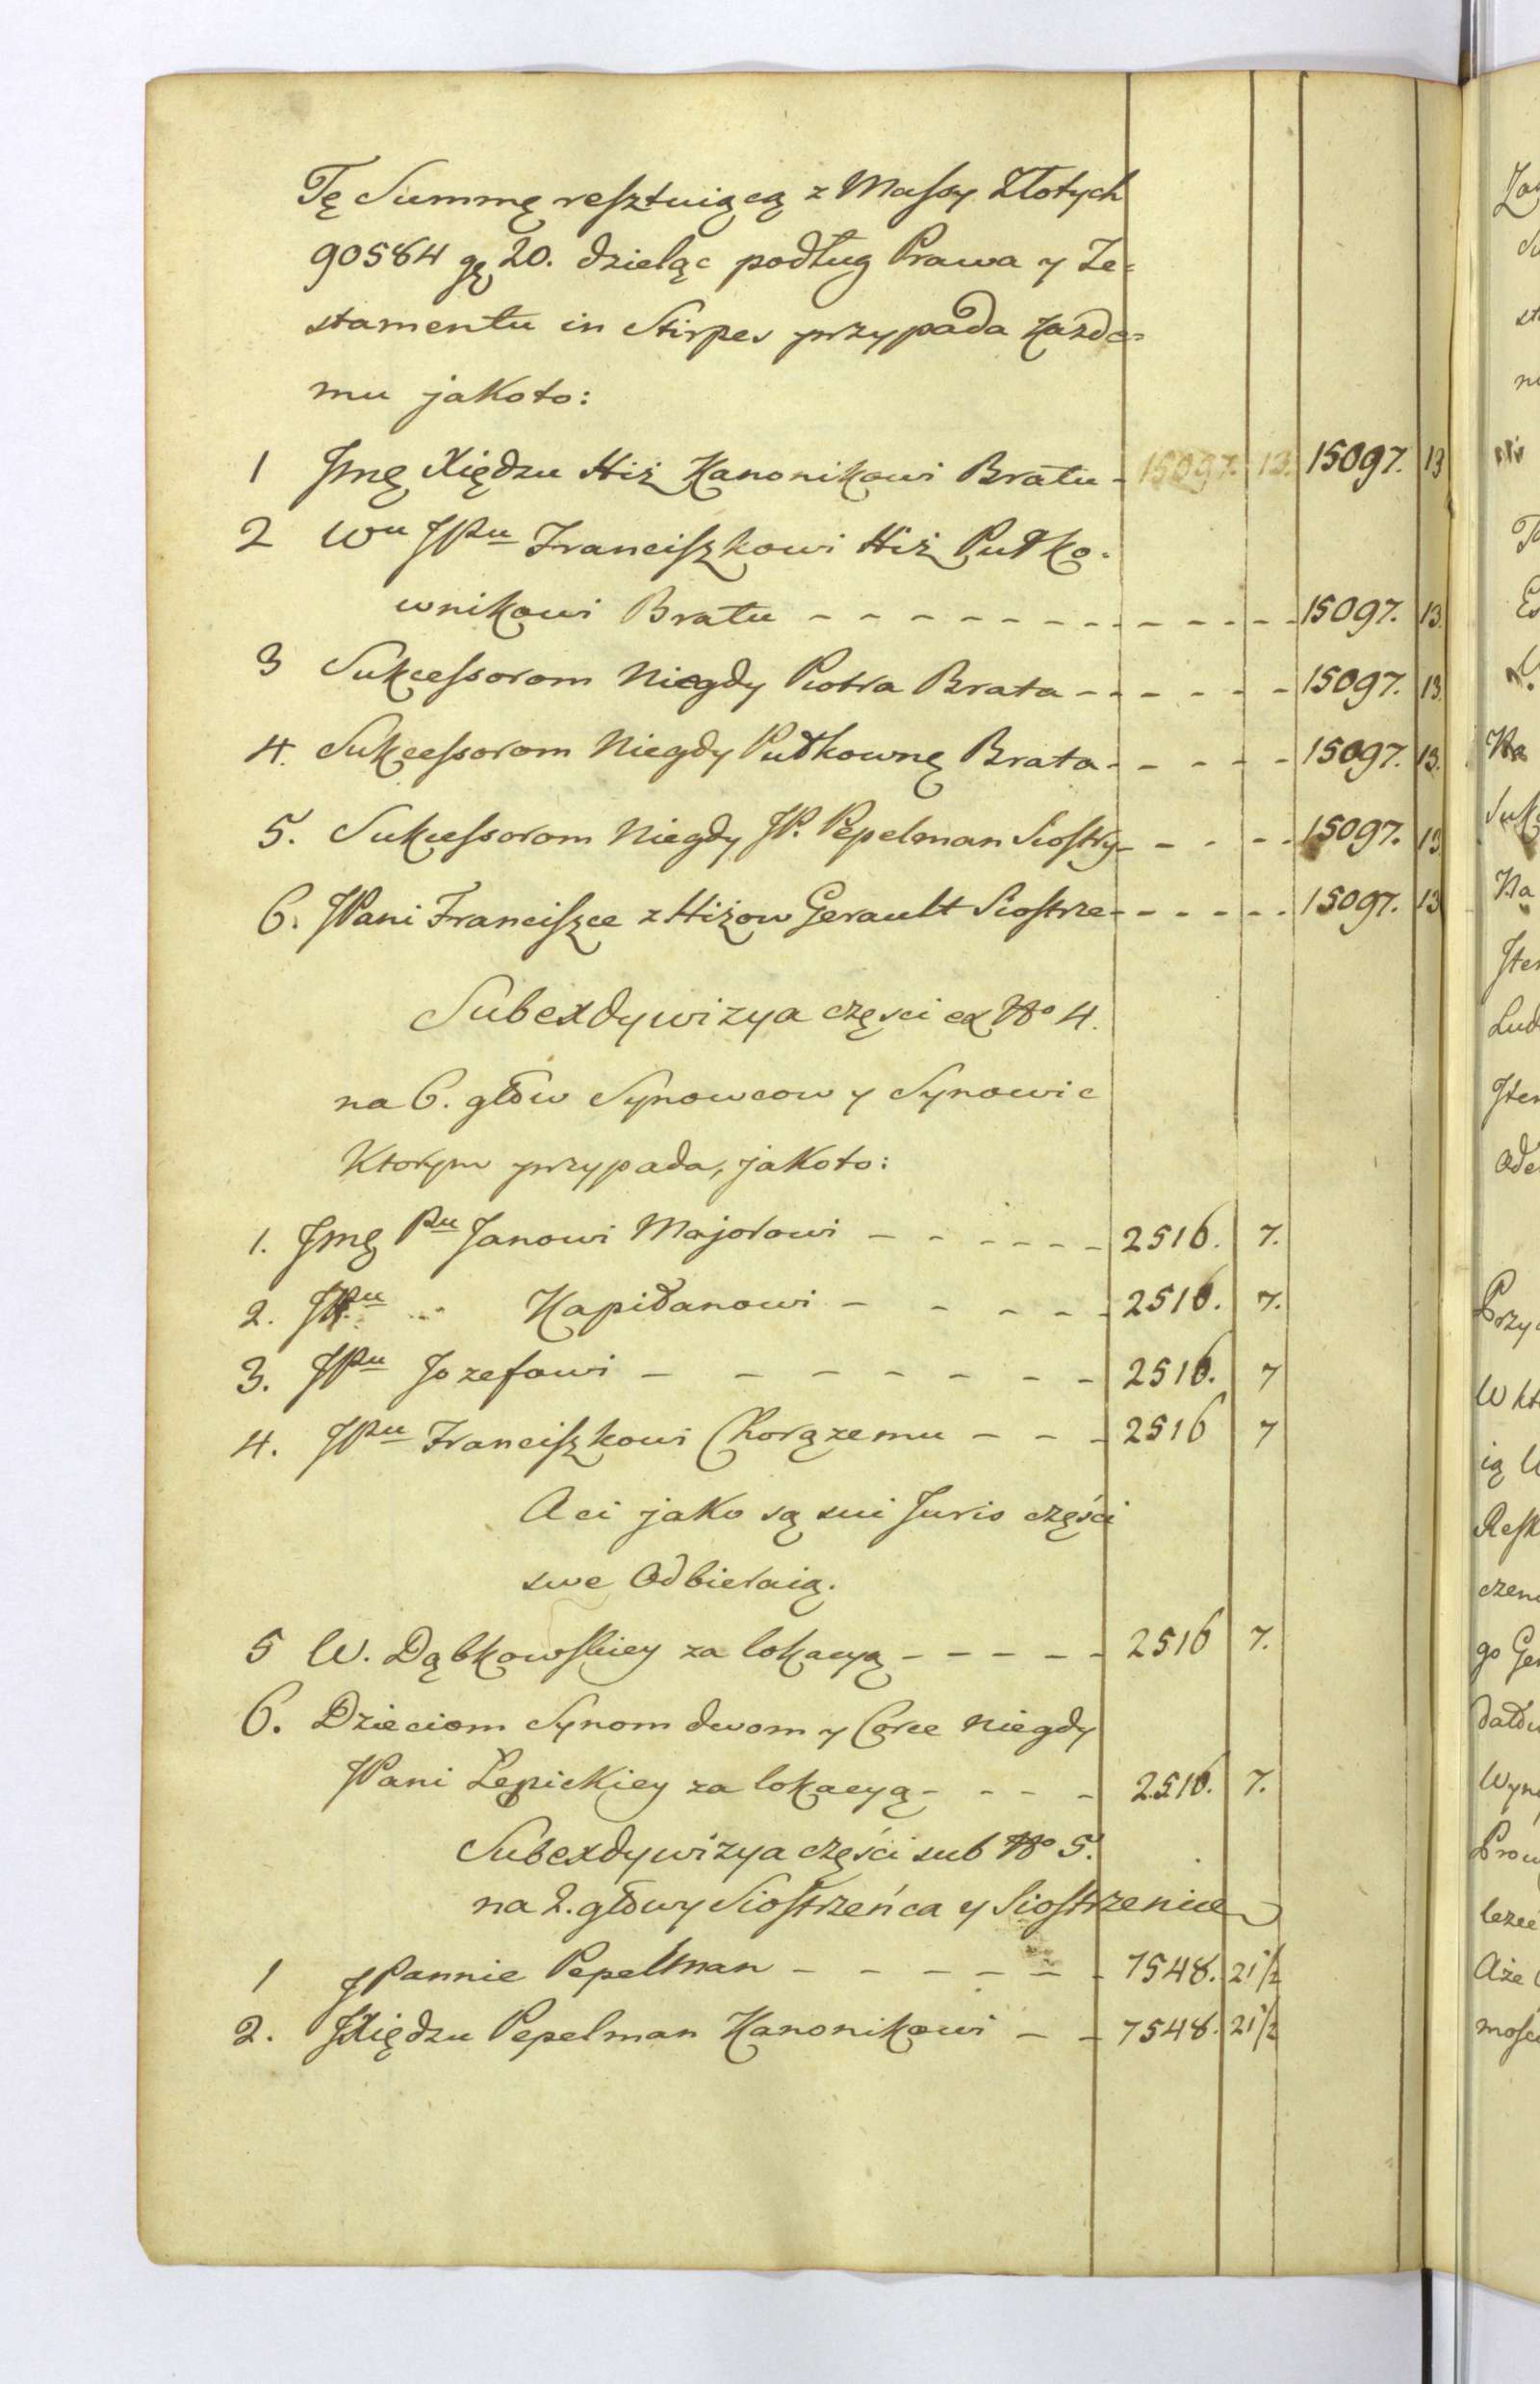 Tę Summę resztuiącą z Massy Złotych
90584 gę 20. dzieląc podług Prawa y Te=
stamentu in Stirpes przypada każde=
mu jakoto:
1 Jmę Xiędzu Hiż Kanonikowi Bratu - 15097. 13. 15097. 13
2 Wu JPu Franciszkowi Hiż Pułko-
wnikowi Bratu - - - - - - - - - - - - 15097. 13.
3 Sukcessorom Niegdy Piotra Brata - - - - - - 15097. 13.
4. Sukcessorom Niegdy Pułkownę Brata - - - - - 15097. 13.
5. Sukcessorom Niegdy JP. Pepelman Siostry - - - - - 15097. 13
6. JPani Franciszce z Hiżow Gerault Siostrze - - - - - - 15097. 13
Subexdywizya częsci ex No 4.
na 6. głów Synowcow y Synowic
Ktorym przypada, jakoto:
1. Jmę Pu Janowi Majorowi - - - - - - 2516. 7.
2. JPu Kapitanowi - - - - - 2516. 7.
3. JPu Jozefowi - - - - - - - 2516. 7
4. JPu Franciszkowi Chorążemu - - - 2516 7
A ci jako są sui Juris części
swe Odbieraią.
5 W. Dąbkowskiey za lokacyą - - - - - 2516 7.
6. Dzieciom Synom dwom y Corce niegdy
JPani Łepickiey za lokacyą - - - - 2516. 7.
Subexdywizya części sub No 5.
na 2. głowy Siostrzeńca y Siostrzenice
1 JPannie Pepelman - - - - - - 7548. 21 1/2
2. JXiędzu Pepelman Kanonikowi - - 7548. 21 1/2